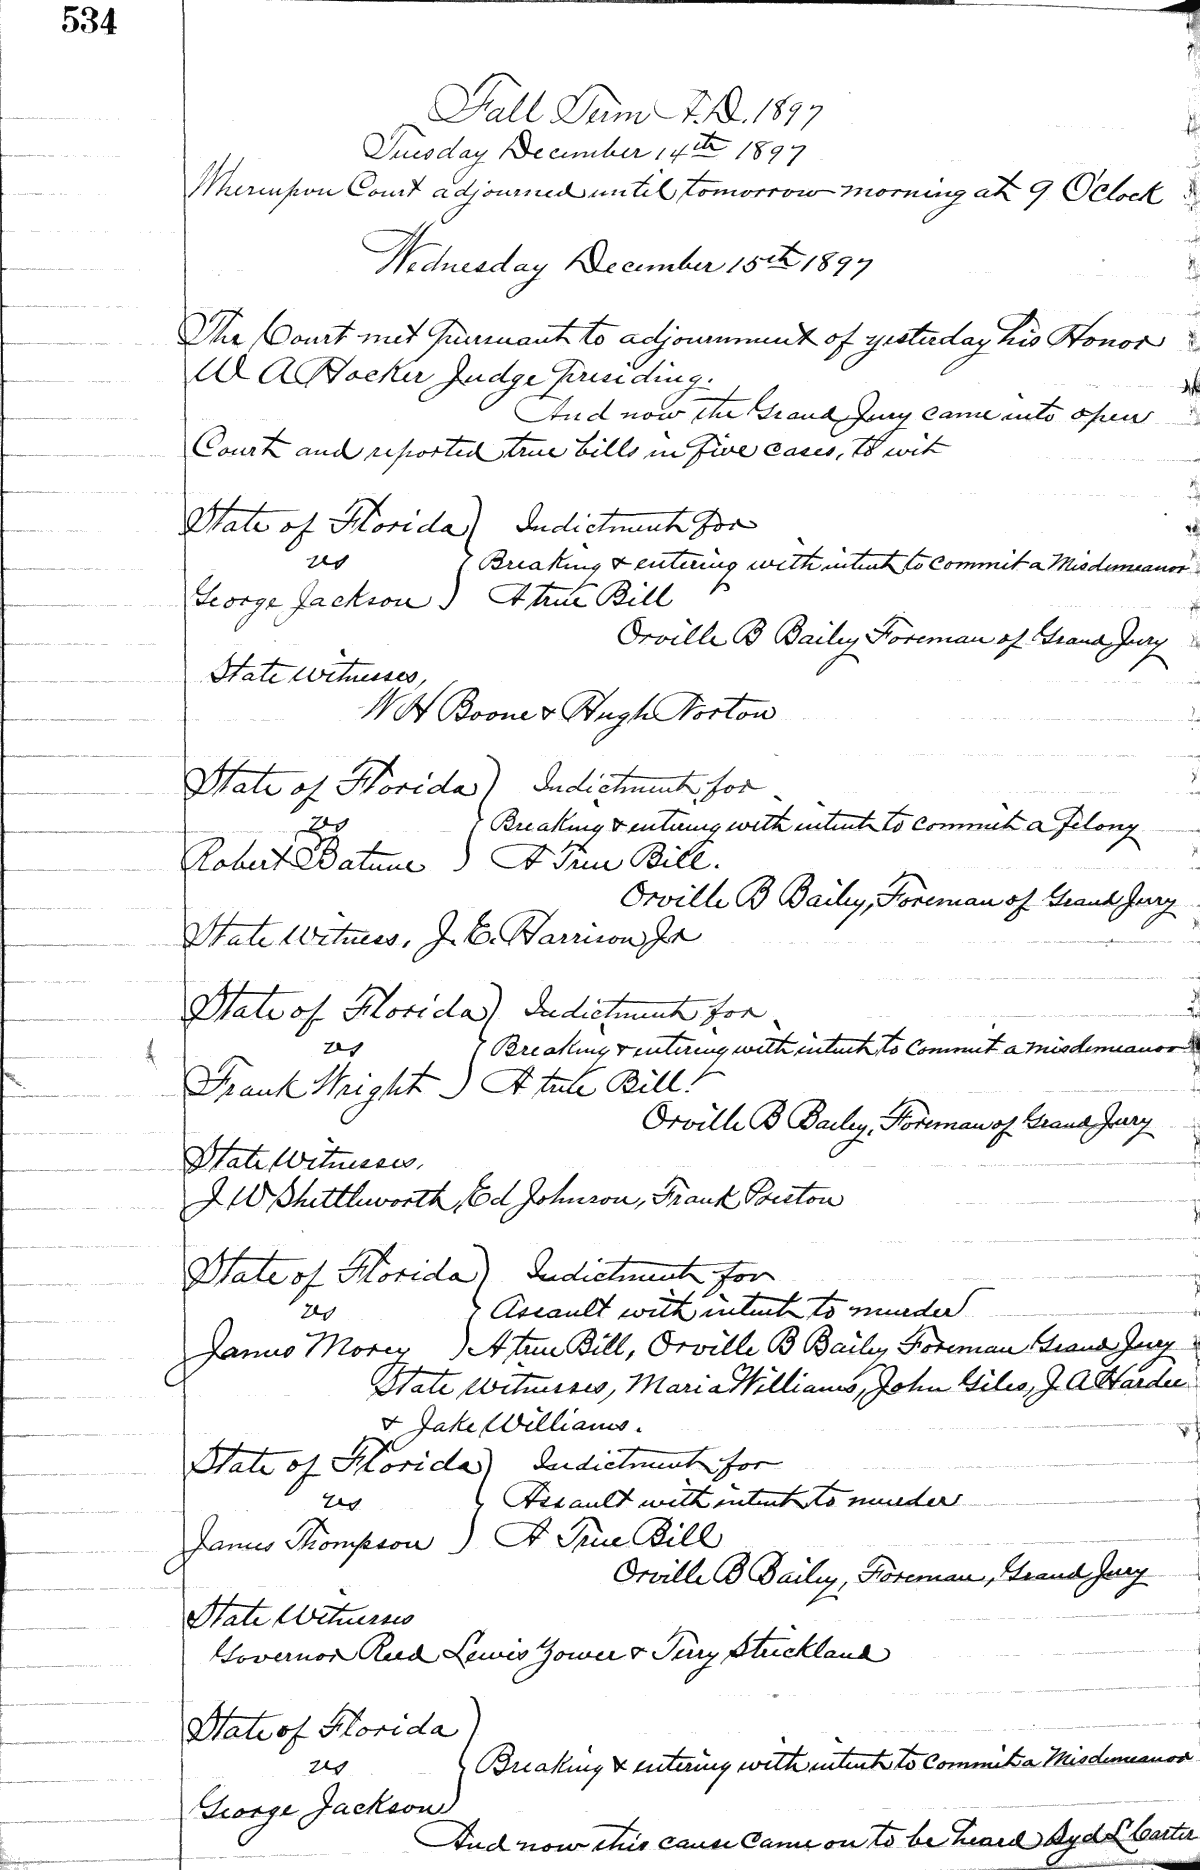 534
Fall Term A.D. 1897
Tuesday December 14th 1897
Whereupon Court adjourned until tomorrow morning at 9 O'Clock
Wednesday December 15th 1897
The Court met pursuant to adjournment of yesterday his Honor
W A Hocker Judge presiding.
And now the Grand Jury came into open
Court and reported true bills in five cases, to wit
State of Florida ) Indictment for
vs } Breaking & entering with intent to commit a Misdemeanor
George Jackson ) A true Bill
Orville B Bailey Foreman of Grand Jury
State Witnesses,
W H Boone & Hugh Norton
State of Florida ) Indictment for
vs } Breaking & entering with intent to commit a felony
Robert ) A True Bill.
Orville B Bailey, Foreman of Grand Jury
State Witness, J. E. Harrison Jr
State of Florida ) Indictment for
vs } Breaking & entering with intent to commit a misdemeanor
Frank Wright ) A true Bill.
Orville B Bailey, Foreman of Grand Jury
State Witnesses.
J W Shettleworth, Ed Johnson, Frank
State of Florida ) Indictment for
vs } Assault with intent to murder
James Morey ) A true Bill, Orville B Bailey Foreman Grand Jury
State Witnesses, Maria Williams, John Giles, J A Hardee
& Jake Williams.
State of Florida ) Indictment for
vs } Assault with intent to murder
James Thompson ) A True Bill
Orville B Bailey, Foreman, Grand Jury
State Witnesses
Governor Reed Lewis & Terry Strickland
State of Florida )
vs } Breaking & entering with intent to commit a Misdemeanor
George Jackson )
And now this cause came on to be heard Syd L Carter